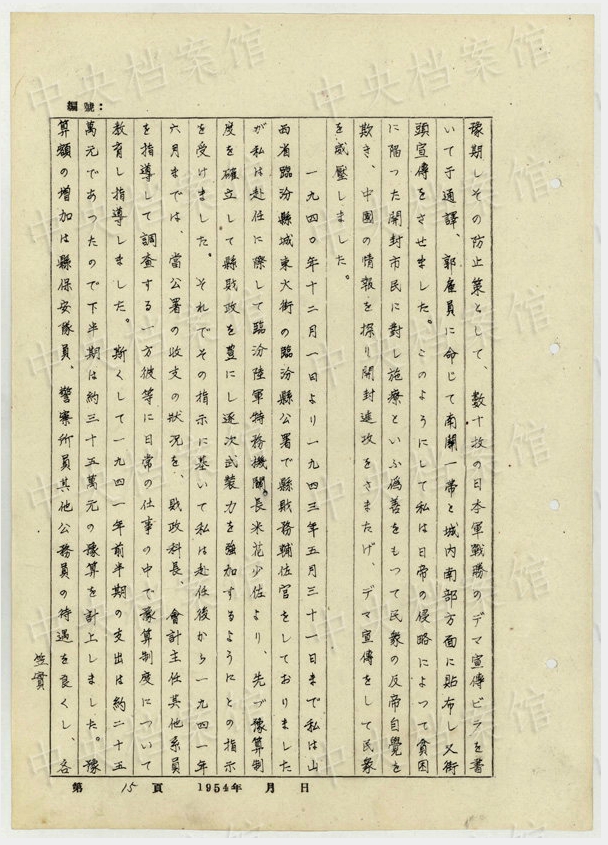 編號：
豫期しその防止策として、数十枚の日本軍戰勝のデマ宣傳ビラを書
いて于通譯、郭雇員に命じて南關一帯と城内南部方面に貼布し又街
頭宣傳をさせました。このようにして私は日帝の侵略によつて貧困
に陥つた開封市民に對し施療といふ偽善をもつて民衆の反帝自覺を
欺き、中國の情報を探り開封速攻をさまたげ、デマ宣傳をして民衆
を威壓しました。
一九四〇年十二月一日より一九四三年五月三十一日まで私は山
西省臨汾縣城東大街の臨汾縣公署で縣財務輔佐官をしておりました
が私は赴任に際して臨汾陸軍特務機關長米花少佐より、先づ豫算制
度を確立して縣財政を豊にし逐次武装力を強加するようにとの指示
を受けました。それでその指示に基いて私は赴任後から一九四一年
六月までは、當公署の收支の狀況を、財政科長、會計主任其他系員
を指導して調査する一方彼等に日常の仕事の中で豫算制度について
教育し指導しました。斯くして一九四一年前半期の支出は約二十五
萬元であつたので下半期は約三十五萬元の豫算を計上しました。豫
算額の増加は縣保安隊員、警察所員其他公務員の待遇を良くし、各
第 15 頁 1954年 月 日
中央档案馆